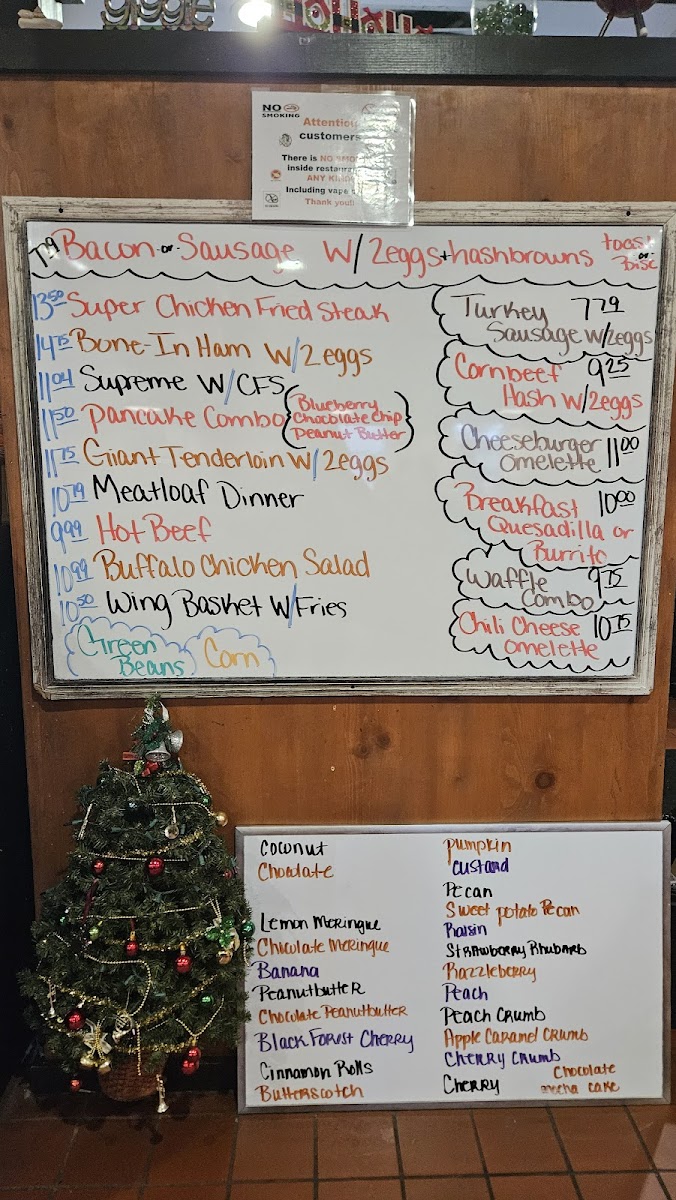 giggle
NO SMOKING
Attention customers
There is NO
inside restaurant
ANY KIND
Including vape
Thank you!!
Bacon -or- Sausage w/ 2eggs + hashbrowns toast -or- Bisc
13.50 Super Chicken Fried Steak
14.75 Bone-In Ham w/2 eggs
11.04 Supreme w/CFS
11.50 Pancake Combo
Blueberry
Chocolate Chip
Peanut Butter
11.75 Giant Tenderloin w/ 2eggs
10.79 Meatloaf Dinner
9.99 Hot Beef
10.99 Buffalo Chicken Salad
10.50 Wing Basket w/Fries
Green Beans
Corn
Turkey 7.79
Sausage w/2eggs
Cornbeef 9.25
Hash w/2eggs
Cheeseburger
Omelette 11.00
Breakfast 10.00
Quesadilla or
Burrito
Waffle 9.75
Combo
Chili Cheese 10.75
Omelette
Coconut
Chocolate
Lemon Meringue
Chocolate Meringue
Banana
Peanutbutter
Chocolate Peanutbutter
Black Forest Cherry
Cinnamon Rolls
Butterscotch
Pumpkin
Custard
Pecan
Sweet potato Pecan
Raisin
Strawberry Rhubarb
Razzleberry
Peach
Peach Crumb
Apple Caramel Crumb
Cherry Crumb
Cherry
Chocolate
mocha cake